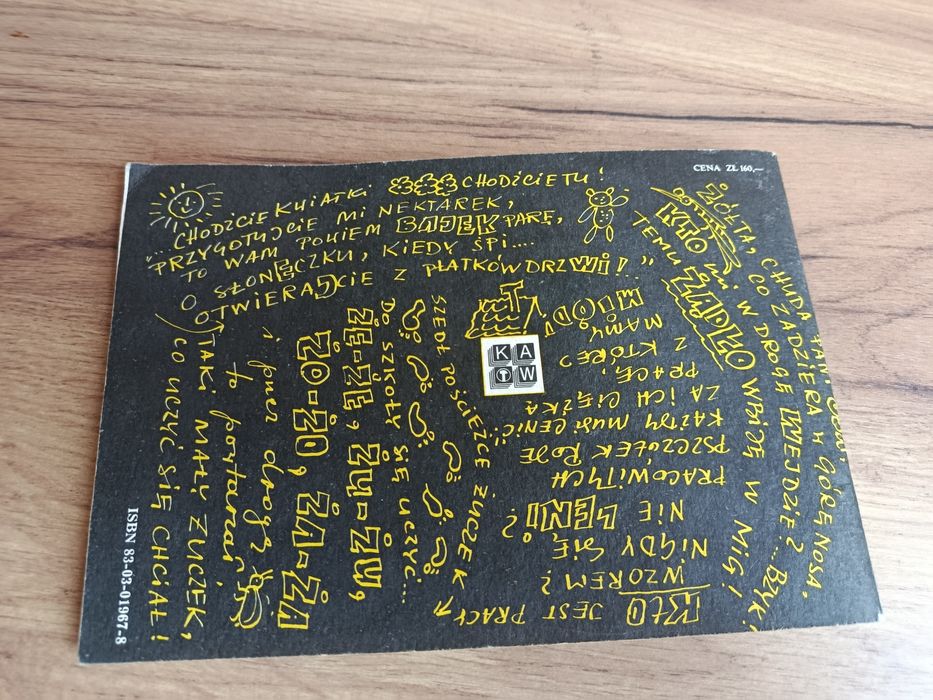 CENA ZŁ 160,—
„...CHODŹCIE KWIATKI CHODŹCIE TU!
PRZYGOTUJCIE MI NEKTAREK,
TO WAM POWIEM BAJEK PARĘ,
O SŁONECZKU, KIEDY ŚPI....
OTWIERAJCIE Z PŁATKÓW DRZWI!”
ŻÓŁTA, CHUDA
CO ZADZIERA W GÓRĘ NOSA.
KTO MI W DROGĘ WEJDZIE?
TEMU ŻĄDŁO WBIJĘ W MIG!
... BZYK!
SZEDŁ PO ŚCIEŻCE ŻUCZEK
DO SZKOŁY SIĘ UCZYĆ...
ŻE-ŻE, ŻY-ŻW,
ŻO-ŻO, ŻA-ŻA
i przez drogę
to powtarzał
TAKI MAŁY ŻUCZEK,
CO UCZYĆ SIĘ CHCIAŁ!
KTO JEST PRACY
WZOREM?
NIGDY SIĘ
NIE LENI?
PRACOWITYCH
PSZCZÓŁEK RODĘ
KAŻDY MUSI CENIĆ!
ZA ICH CIĘŻKĄ
PRACĘ,
Z KTÓREJ
MAMY
MIÓD!
KAW
ISBN 83-03-01967-8